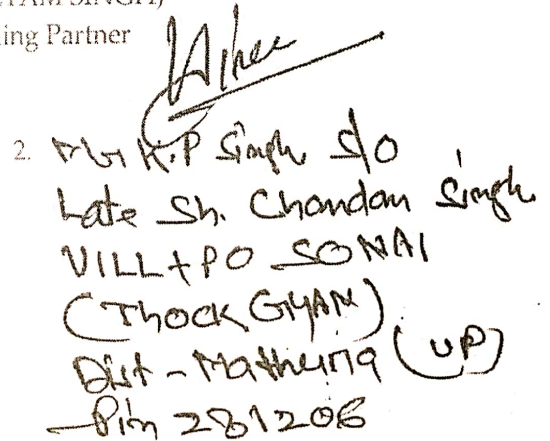 SINGH)
ing Partner
2. Mr K.P Singh S/O
Late Sh. Chandan Singh
VILL+PO SONAI
(Thock GYAN)
Dist - Mathura (UP)
Pin 281206